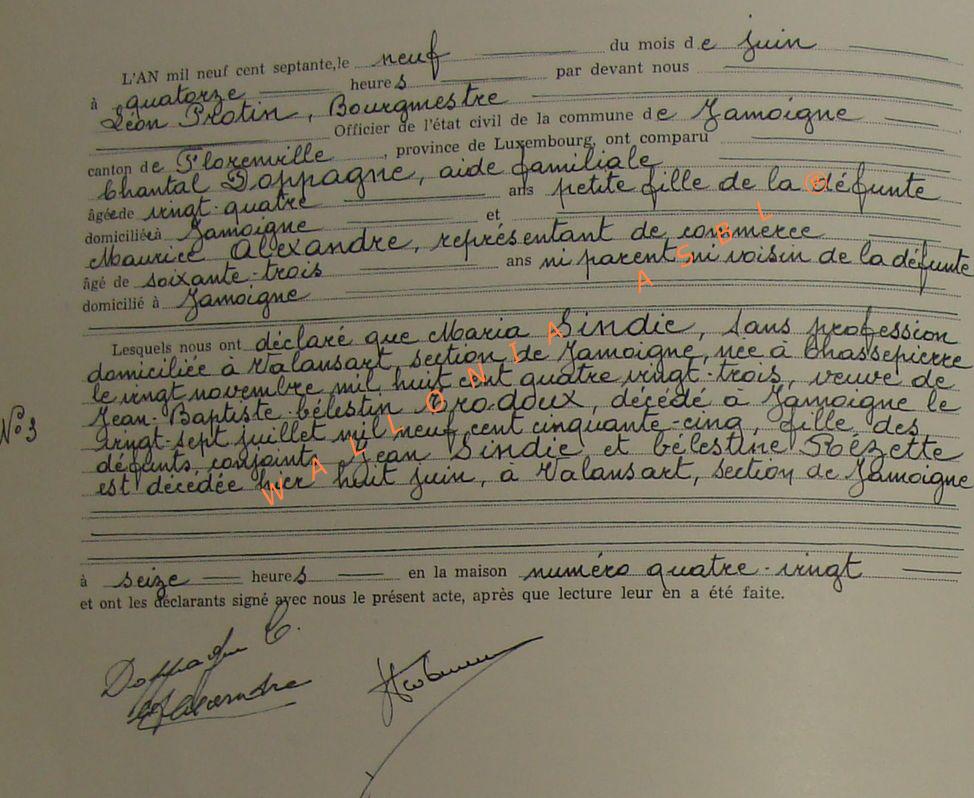 L'AN mil neuf cent septante, le neuf du mois de juin
à quatorze heures par devant nous
Léon Protin, Bourgmestre
Officier de l'état civil de la commune de Jamoigne
canton de Florenville, province de Luxembourg, ont comparu
Chantal Doppagne, aide familiale
âgée de vingt-quatre ans petite fille de la défunte
domiciliée à Jamoigne et
Maurice Alexandre, représentant de commerce
âgé de soixante-trois ans ni parent ni voisin de la défunte
domicilié à Jamoigne
Lesquels nous ont déclaré que Maria Sindic, sans profession
domiciliée à Valansart section de Jamoigne, née à Chassepierre
le vingt novembre mil huit cent quatre vingt-trois, veuve de
N° 3 Jean-Baptiste-Célestin décédé à Jamoigne le
vingt-sept juillet mil neuf cent cinquante-cinq, fille des
défunts conjoints Jean Sindic et Célestine Rézette
est décédée hier huit juin, à Valansart, section de Jamoigne
à seize heures en la maison numéro quatre-vingt
et ont les déclarants signé avec nous le présent acte, après que lecture leur en a été faite.
Doppagne C.
Alexandre
WALLONIA ASBL ®